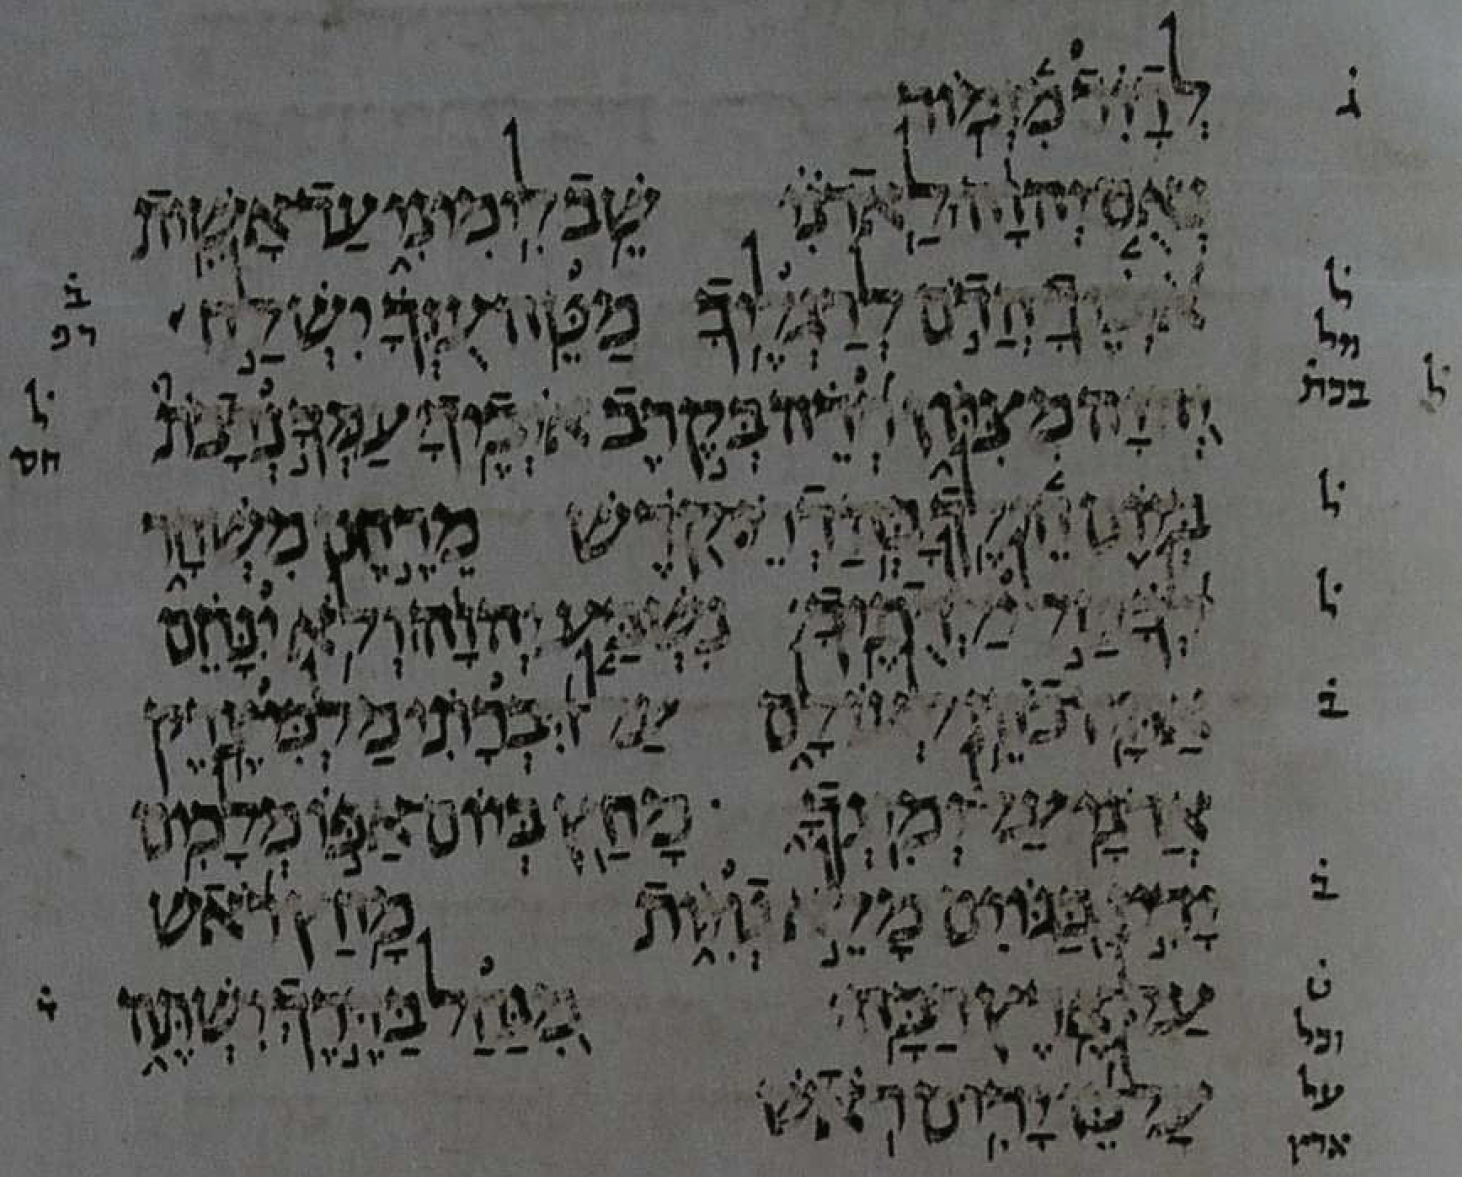 לְדָוִד מִזְמוֹר ג
נְאֻם יְהוָה לַאדֹנִי שֵׁב לִימִינִי עַד אָשִׁית
אֹיְבֶיךָ הֲדֹם לְרַגְלֶיךָ מַטֵּה עֻזְּךָ יִשְׁלַח
יְהוָה מִצִּיּוֹן רְדֵה בְּקֶרֶב אֹיְבֶיךָ עַמְּךָ נְדָבֹת
בְּיוֹם חֵילֶךָ בְּהַדְרֵי קֹדֶשׁ מֵרֶחֶם מִשְׁחָר
לְךָ טַל יַלְדֻתֶיךָ נִשְׁבַּע יְהוָה וְלֹא יִנָּחֵם
אַתָּה כֹהֵן לְעוֹלָם עַל דִּבְרָתִי מַלְכִּי צֶדֶק
אֲדֹנָי עַל יְמִינְךָ מָחַץ בְּיוֹם אַפּוֹ מְלָכִים
יָדִין בַּגּוֹיִם מָלֵא גְוִיּוֹת מָחַץ רֹאשׁ
עַל אֶרֶץ רַבָּה מִנַּחַל בַּדֶּרֶךְ יִשְׁתֶּה
עַל כֵּן יָרִים רֹאשׁ